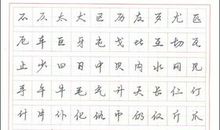 不 灰 太 犬 区 历 友 尤 匹
厄 车 巨 牙 屯 戈 比 互 切 瓦
止 少 曰 日 中 贝 内 水 冈 见
手 午 牛 毛 气 升 夭 长 仁 仃
什 片 仆 化 仇 币 仍 仅 斤 爪